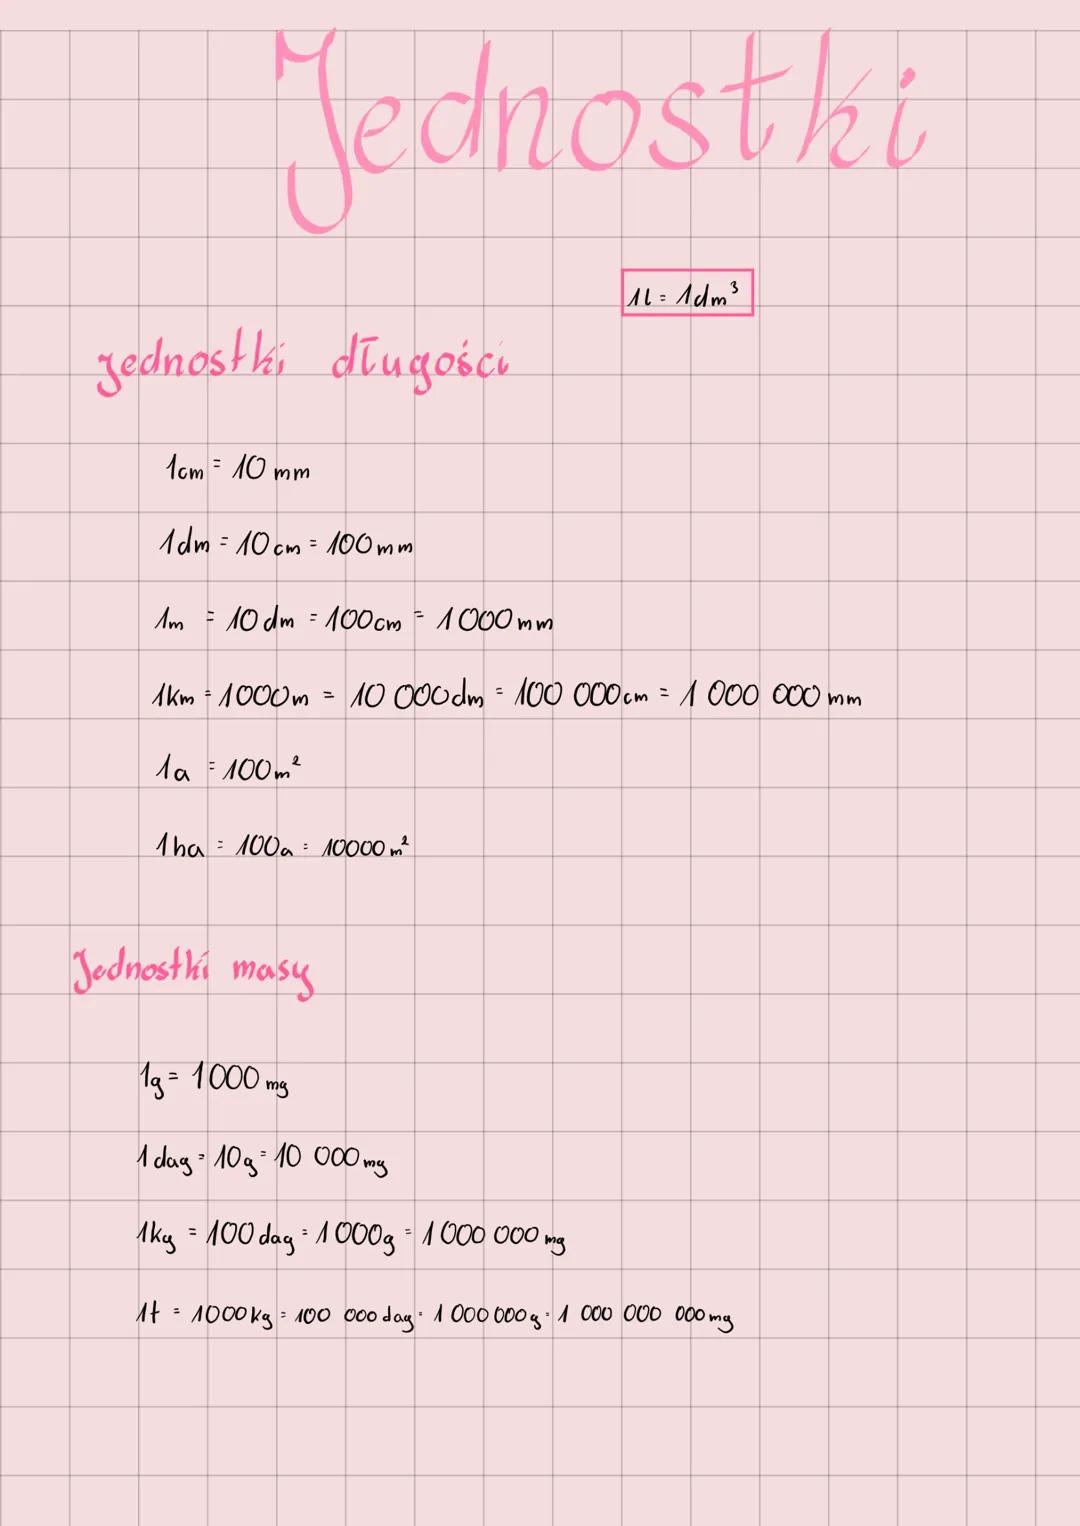 Jednostki
1l = 1dm³
jednostki długości
1cm = 10 mm
1dm = 10cm = 100mm
1m = 10dm = 100cm = 1000mm
1km = 1000m = 10 000dm = 100 000cm = 1 000 000 mm
1a = 100m²
1ha = 100a = 10000m²
Jednostki masy
1g = 1000 mg
1dag = 10g = 10 000mg
1kg = 100dag = 1000g = 1 000 000 mg
1t = 1000kg = 100 000dag = 1 000 000g = 1 000 000 000mg